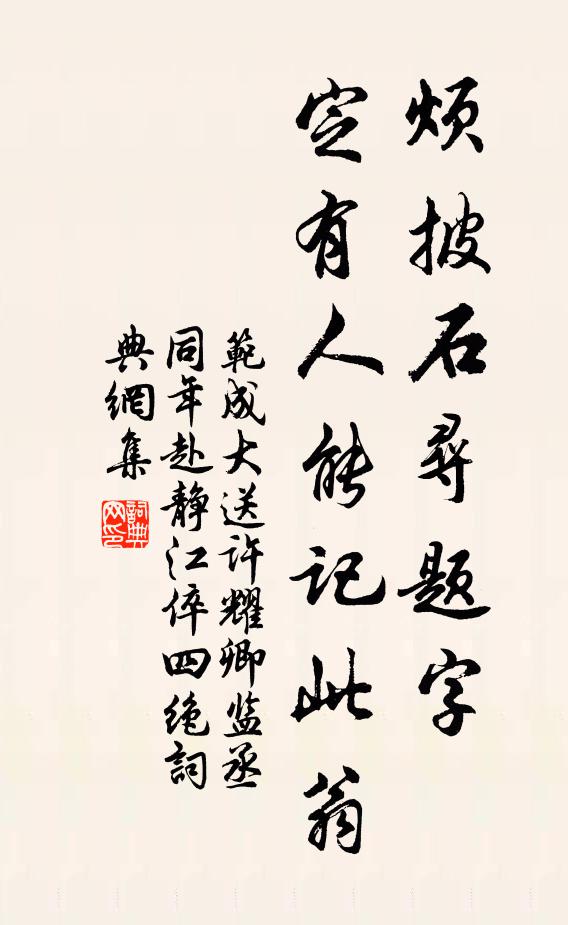 烦披石尋题字
定有人能記此翁
範成大送许耀卿监丞
同年赴静江倅四绝詞
典網集
詞典网印